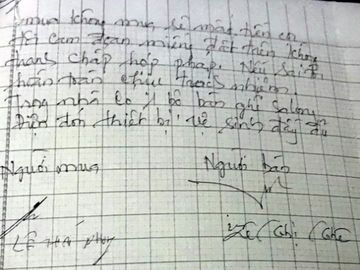 mua không mua sẽ mất tiền cọ
Tôi cam đoan miếng đất trên không
thanh chấp hợp pháp. Nếu sai tôi
hoàn toàn chịu trách nhiệm
Trong nhà có 1 bộ bàn ghi salong
Điện đơn thiết bị vệ sinh đầy đủ
Người mua Người bán
Lê